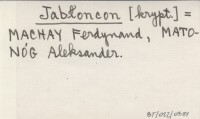 Jabłoncon [krypt.] =
MACHAY Ferdynand, MATO-
NÓG Aleksander.